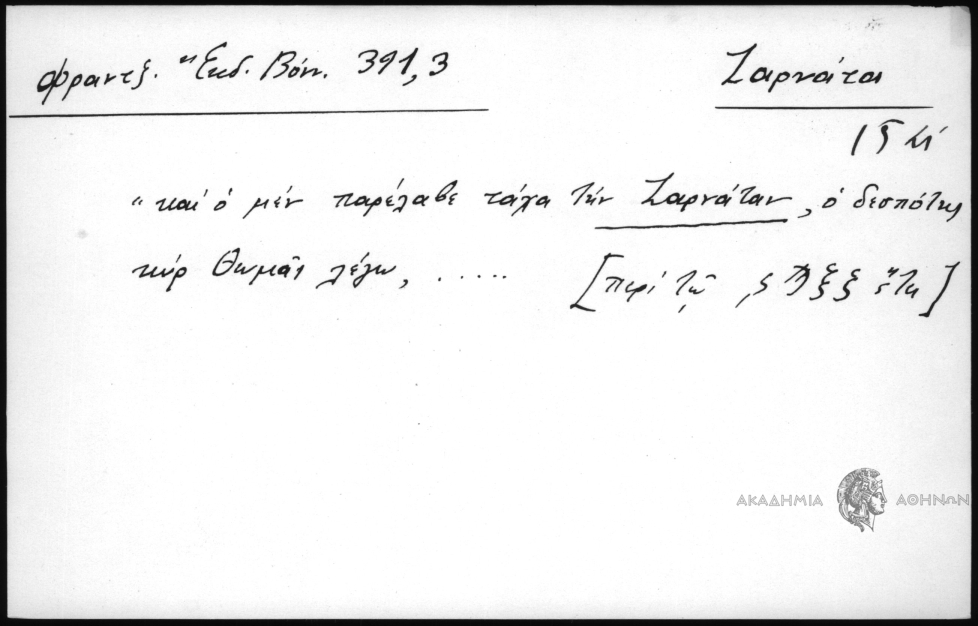 Φραντζ. Ἔκδ. Βόν. 391,3
Ζαρνάτα
"καί ὁ μέν παρέλαβε τάχα τήν Ζαρνάταν, ὁ δεσπότης
κύρ Θωμᾶς λέγω, .....
[περί τῷ ͵ϛϠξξ ἔτει]
ΑΚΑΔΗΜΙΑ ΑΘΗΝΩΝ